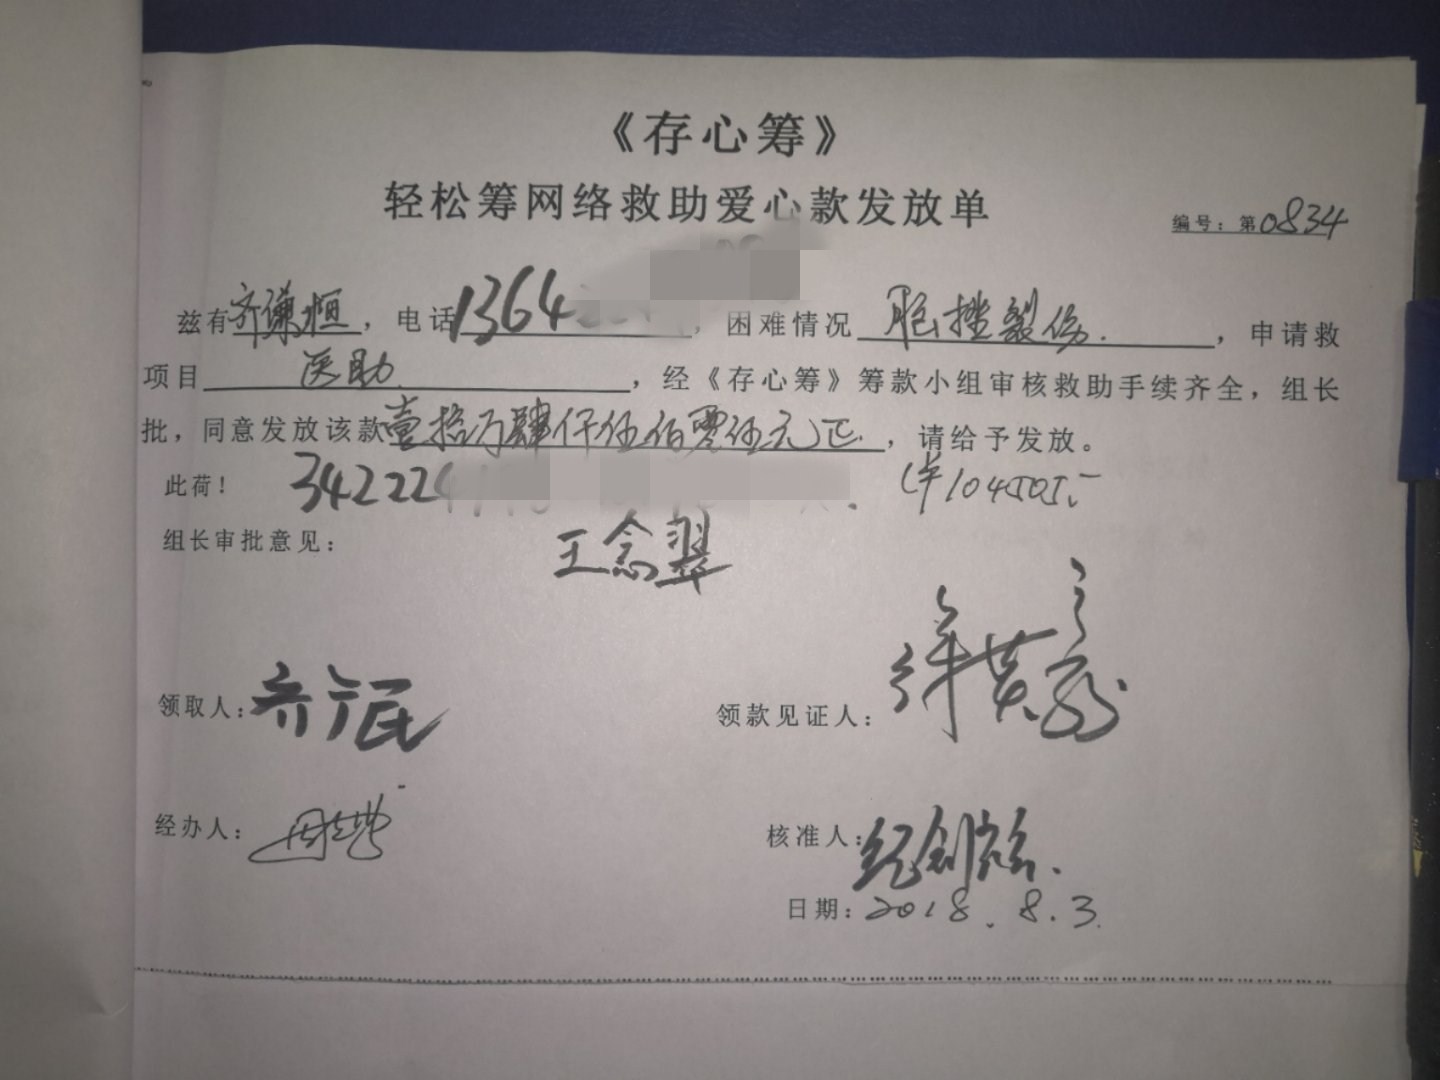 《存心筹》
轻松筹网络救助爱心款发放单
编号：第0834
兹有齐谦恒，电话1364，困难情况脑挫裂伤.，申请救
项目医助，经《存心筹》筹款小组审核救助手续齐全，组长
批，同意发放该款壹拾万肆仟伍佰零伍元正，请给予发放。
此荷！342224 (￥104505.-
组长审批意见：王念翠
领取人：齐 领款见证人：
经办人： 核准人：
日期：2018.8.3.